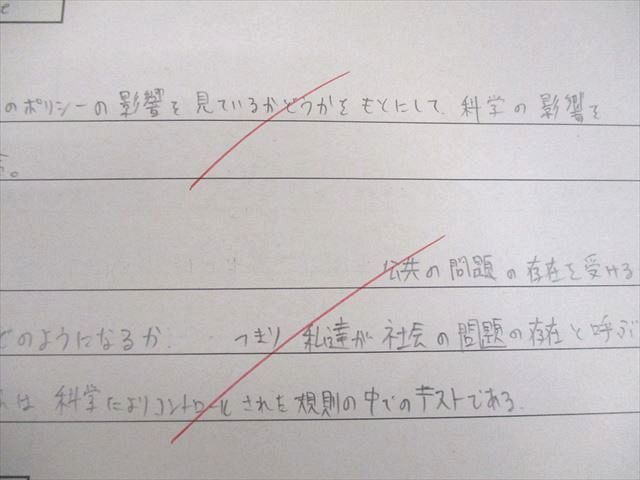 のポリシーの影響を見ているかどうかをもとにして、科学の影響を
る。
公共の問題の存在を受ける
どのようになるか. つまり 私達が社会の問題の存在と呼ぶ
は 科学によりコントロールされた規則の中でのテストである.